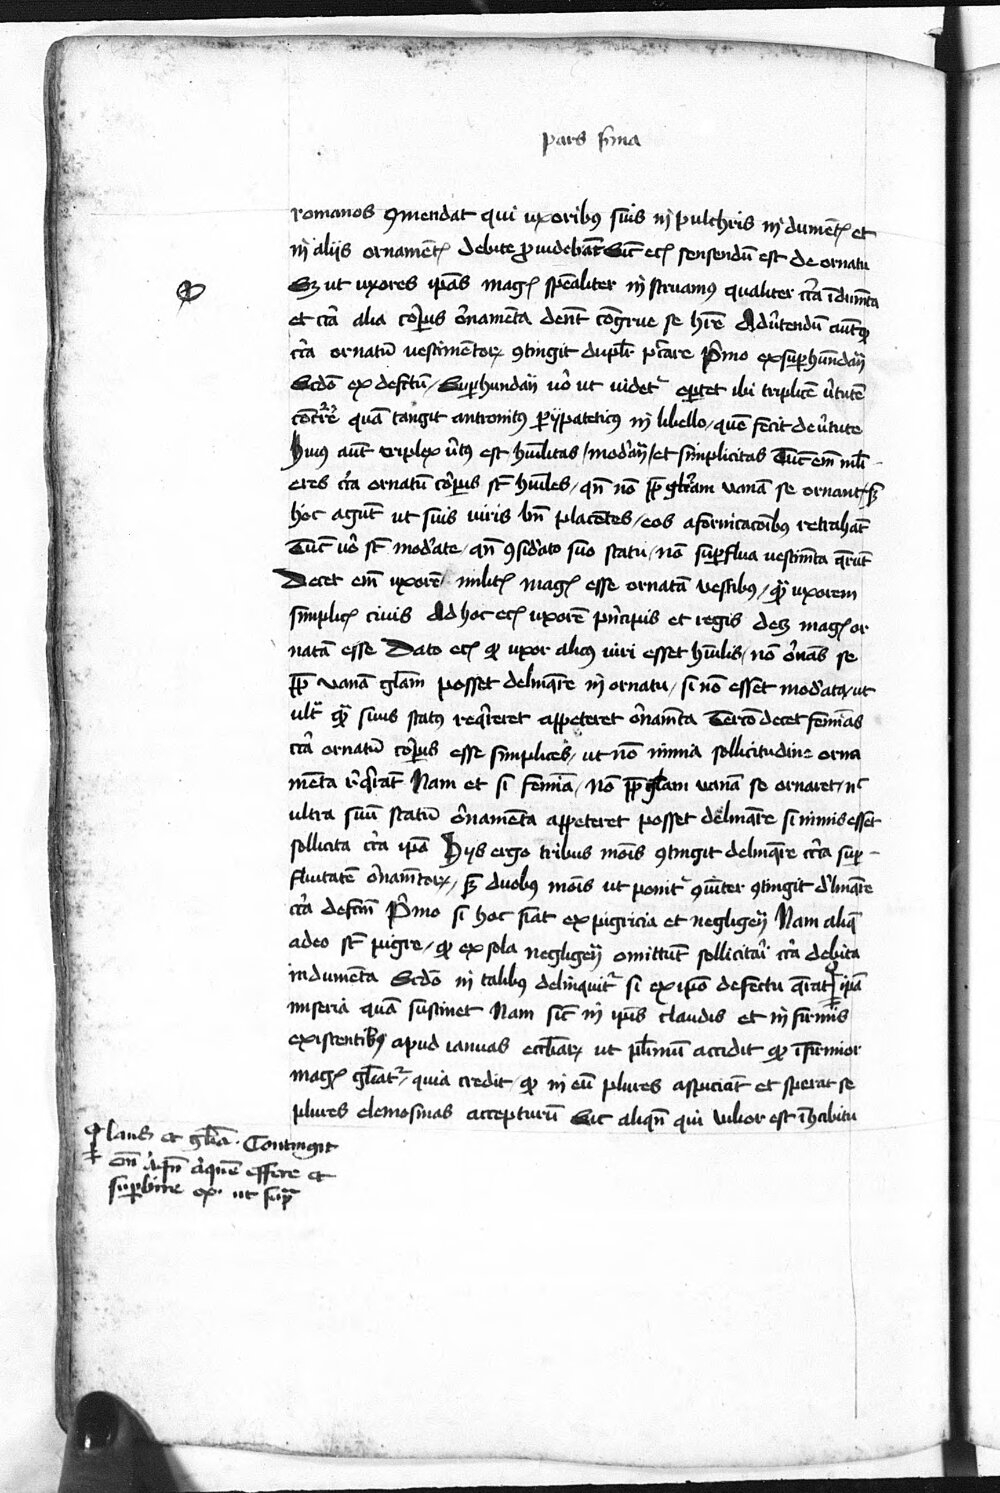 pars scda
romanos ꝯmendat qui uxoribꝰ suis in pulchris indumetꝭ et
in aliis ornamentꝭ debite ꝓuidebat Sic ecꝭ sensendu est de ornatu
Sꝫ ut uxores ipas magꝭ spealiter instruamꝰ qualiter cca idumta
et cca alia corpis ornameta dent congrue se hre Aduertendu aute
cca ornatu vestimentoꝝ ꝯtingit duplr peccare Primo ex suphundacia
Scdo ex defectu Suphundacia uo ut uidet oportet ibi triplice utute
quam tangit antronicꝰ perypateticꝰ in libello que fecit de utute
Huiꝰ aut triplex utꝰ est humilitas moderacio et simplicitas Tuc em muli
eres circa ornatu corpis st humiles qn no ppt gloriam vana se ornant sꝫ
hoc agut ut suis viris bn placetes eos a fornicacoibꝰ retrahat
Tuc uo st moderate qn ꝯsiderato suo statu no superflua vestimta querut
Decet em uxore militꝭ magꝭ esse ornata vestibꝰ quam uxorem
simplicꝭ civis Ad hoc ecꝭ uxore principis et regis decet magꝭ or
nata esse Dato ecꝭ quod uxor alicꝰ viri esset humilis no ornas se
ppt vana gloam posset delinquere in ornatu si no esset moderata ut
ult quam suus statꝰ reqreret appeteret ornameta Tercio decet feminas
circa ornatu corpis esse simplices ut no nimia sollicitudine orna
menta requirat Nam et si femina no ppt gloam vana se ornaret nec
ultra suu statu ornameta appeteret posset delinquere si nimis esset
sollicita circa ipa Hys ergo tribus mois ꝯtingit delinquere circa sup
fluitate ornametoꝝ sꝫ duobꝰ mois ut ponit ꝯtingit delinquere
circa defectu Primo si hoc fiat ex pigricia et negligencia Nam aliqui
adeo st pigre quod ex sola negligencia omittut sollicitari circa debita
indumenta Scdo in talibꝰ delinquit si ex ipso defectu querat ipa
miseria qua sustinet Nam sic in ipis claudis et infirmis
existentibꝰ apud ianuas eccliaꝝ ut plimu accidit quod ifirmior
magꝭ gloriat quia credit quod in eu plures aspiciat et sperat se
plures elemosinas accepturu Sic aliqn qui vilior est i habitu
laus et gloria Contingit
em effere et
superbire ex ut supra